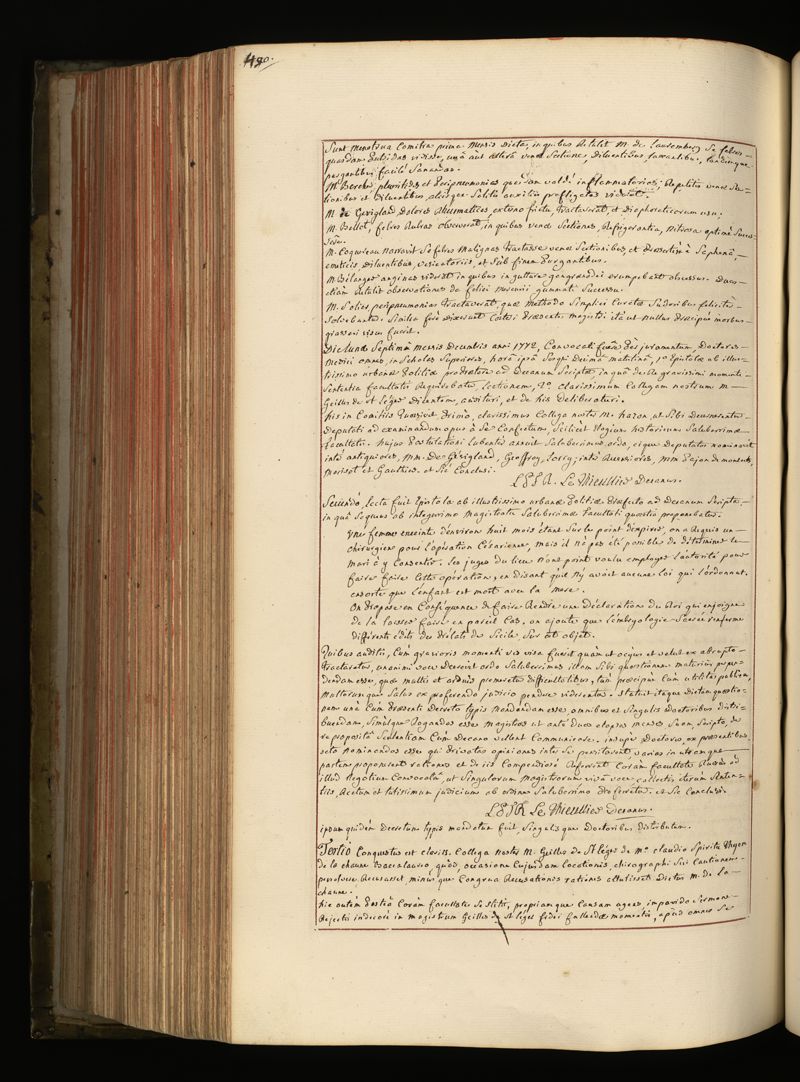 490.
Sunt menstrua Comitia prima mensis dicta, in quibus retulit M. de Lauremberg se febres
quasdam putridas vidisse, unâ aut alterâ venae sectione, diluentibus, purgantibus facile sanandas.
M. Bercher pleuritides et peripneumonias quasdam valdè inflammatorias; repetitis venae sectionibus et diluentibus, aliisque solitis auxiliis profligatas viderat.
M. de Gevigland dolores rheumaticos, externo frictu, tractaverat, et diaphoreticorum usu;
M. Bellot, febres rubras observaverat, in quibus venae sectiones, refrigerantia, nitrosa optimè
M. Coquereau narravit se febres malignas tractasse venae sectionibus, et praesertim saphenâ,
emeticis, diluentibus, vesicatoriis, et sub finem purgantibus.
M. Bélanger anginas viderat in quibus in gutture gangraenosi erumpebant abscessus.
etiam retulit observationes de felici mercurii gummati successu.
M. Solier peripneumonias tractaverat, quae methodo simplici curatae sudoribus felicitè
solvebantur. Similia ferè dixerunt caeteri praesentes magistri ità ut nullus praecipuè morbus
grassari visus fuerit.
Die Lunae septimâ mensis decembris anni 1772, convocati fuere per juramentum, doctores
medici omnes, in scholas superiores, horâ ipsâ decimâ matutinâ, 1º Epistolae ab illus-
trissimo urbanae politiae praefecto ad decanum scriptae, in quâ de re gravissimi momenti
sententia facultatis requirebatur, lectionem, 2º. clarissimum collegam nostrum M.
Geille de St Léger dilantem, audituri, et de his deliberaturi.
his in comitiis quaesivit primò, clarissimus collega noster M. hazon, ut sibi decernerentur
deputati ad examinandum opus à se confectum, scilicet elogium historicum saluberrimae
facultatis. hujus postulationi lubentèr annuit saluberrimus ordo, eique deputatos nominavit
inter antiquiores, MM. De Gévigland, Geoffroy, Lorry, inter recentiores, MM Pajon de moncets,
Morisot et Gauthier. et sic conclusi.
L. P. F. R. Le Thieullier Decanus.
Secundò, lecta fuit Epistola ab illustrissimo urbanae politiae praefecto ad decanum scripta,
in quâ sequens ab integerrimo magistratu saluberrimae facultati quaestio proponebatur.
Une femme enceinte d'environ huit mois étant sur le point d'expirer, on a requis un
chirurgien pour l'opération Césarienne, mais il n'a pas été possible de déterminer le
mari à y consentir. les juges du lieu n'ont point voulu employer l'autorité pour
faire faire cette opération, en disant qu'il n'y avoit aucune loi qui l'ordonnat.
ensorte que l'enfant est mort avec la mere.
On propose en conséquence de faire rendre une déclaration du Roi qui enjoigne
de la laisser faire en pareil cas. on ajoute que l'embryologie sacrée renferme
différents édits des prélats de Sicile sur cet objet.
Quibus auditis, cùm gravioris momenti res visa fuerit quàm ut ocyus et velut ex abrupto
tractaretur, unanimi voce decrevit ordo saluberrimus illam sibi quaestionem maturius perpen-
dendam esse, quae multis et arduis premeretur difficultatibus, tùm praecipuè cùm utilitas publica,
multorumque salus ex proferendo judicio pendere viderentur. Statuit itaque dictam quaestio-
nem unà cùm praesenti decreto typis mandandam esse, omnibus et singulis doctoribus distri-
buendam, simulque rogandos esse magistros ut ante duos elapsos menses suam, scripto, de
re propositâ sententiam cùm decano vellent communicare. insuper doctores, ex praesentibus,
sex nominandos esse qui privatas opiniones inter se perpenderent, varias in utramque
partem proponerent rationes et de iis compendiosè referrent coram facultate rursùs ad
illud negotium convocatâ, ut singulorum magistrorum vivâ voce collectis iterum senten-
tiis, rectum et tutissimum judicium ab ordine saluberrimo proferretur. et sic conclusi.
L. P. F. R. Le Thieullier Decanus.
ipsum quidem decretum typis mandatum fuit, singulisque doctoribus distributum.
Tertiò conquestus est clariss. collega noster M. Geille de St léger de mº claudio Spiritu
de la chaume baccalaureo, quòd, occasione cujusdam locationis, chirographi sui cautionem
recusasset, minùsque congrua recusationis rationes attulisset dictus M. de la
chaume.
hic autem posteà coràm facultate se stitit, propriamque causam agens, impavido sermone
rejectis indecorè in magistrum Geille de St léger fidei fallendae momentis, apud omnes se